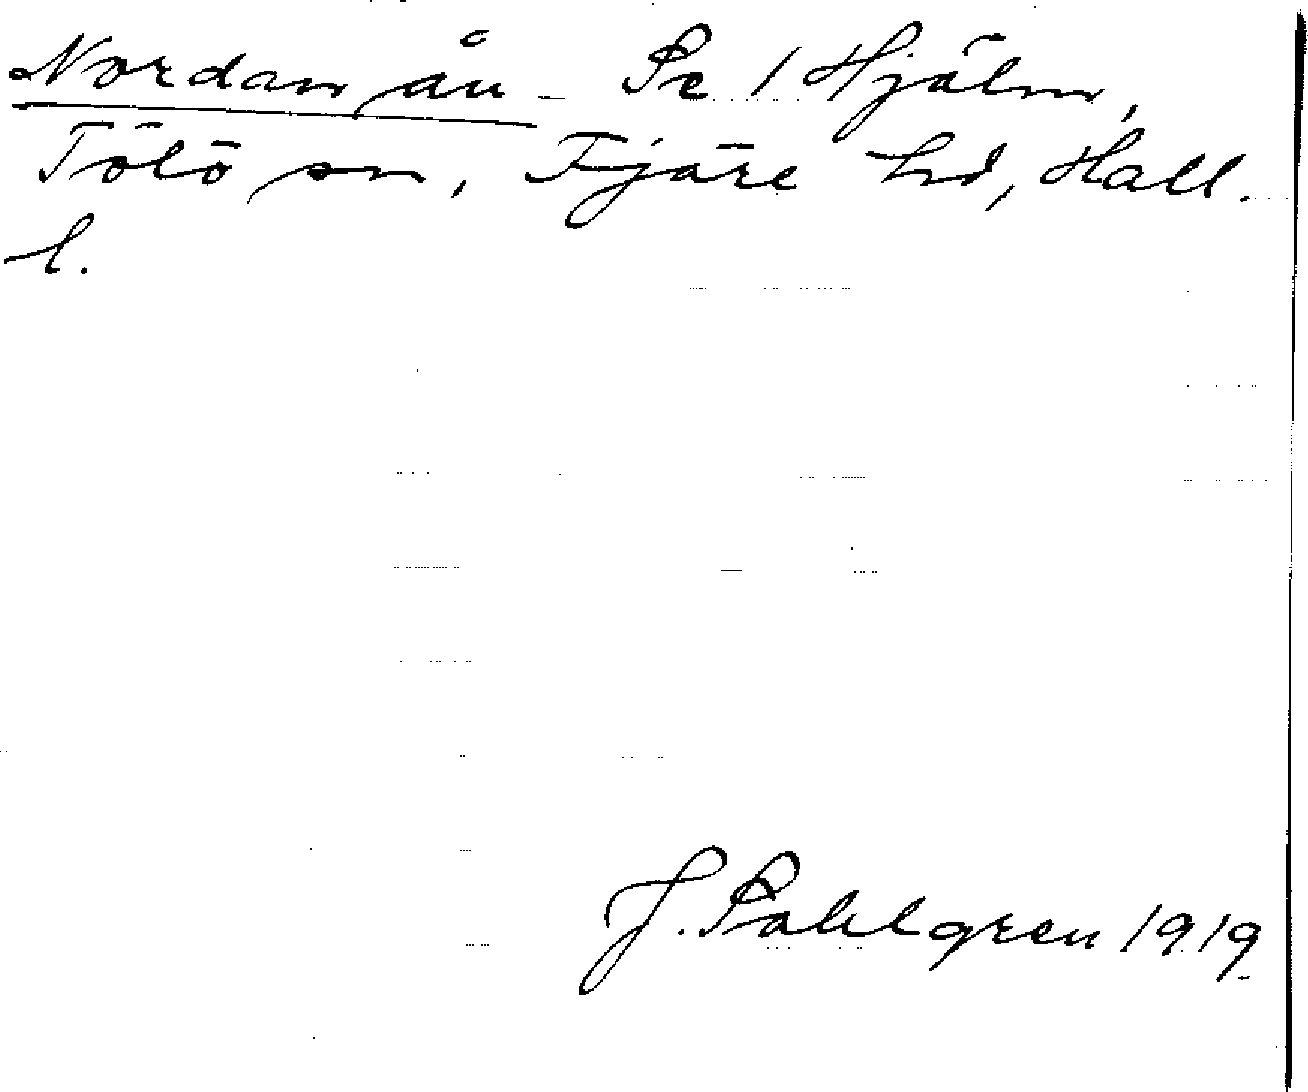 Nordan ån – Se 1 Hjälm,
Tölö sn, Fjäre hd, Hall.
l.
J. Sahlgren 1919